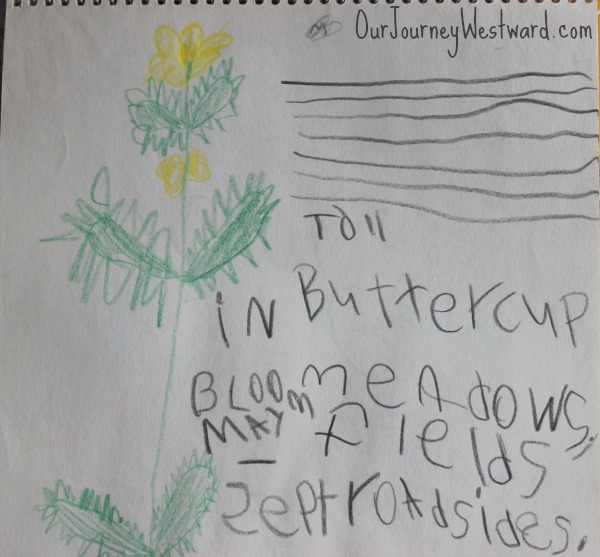 OurJourneyWestward.com
Tall
Buttercup
iN
BLOOM
MAY
–
Sept
meAdows,
fields,
roadsides.